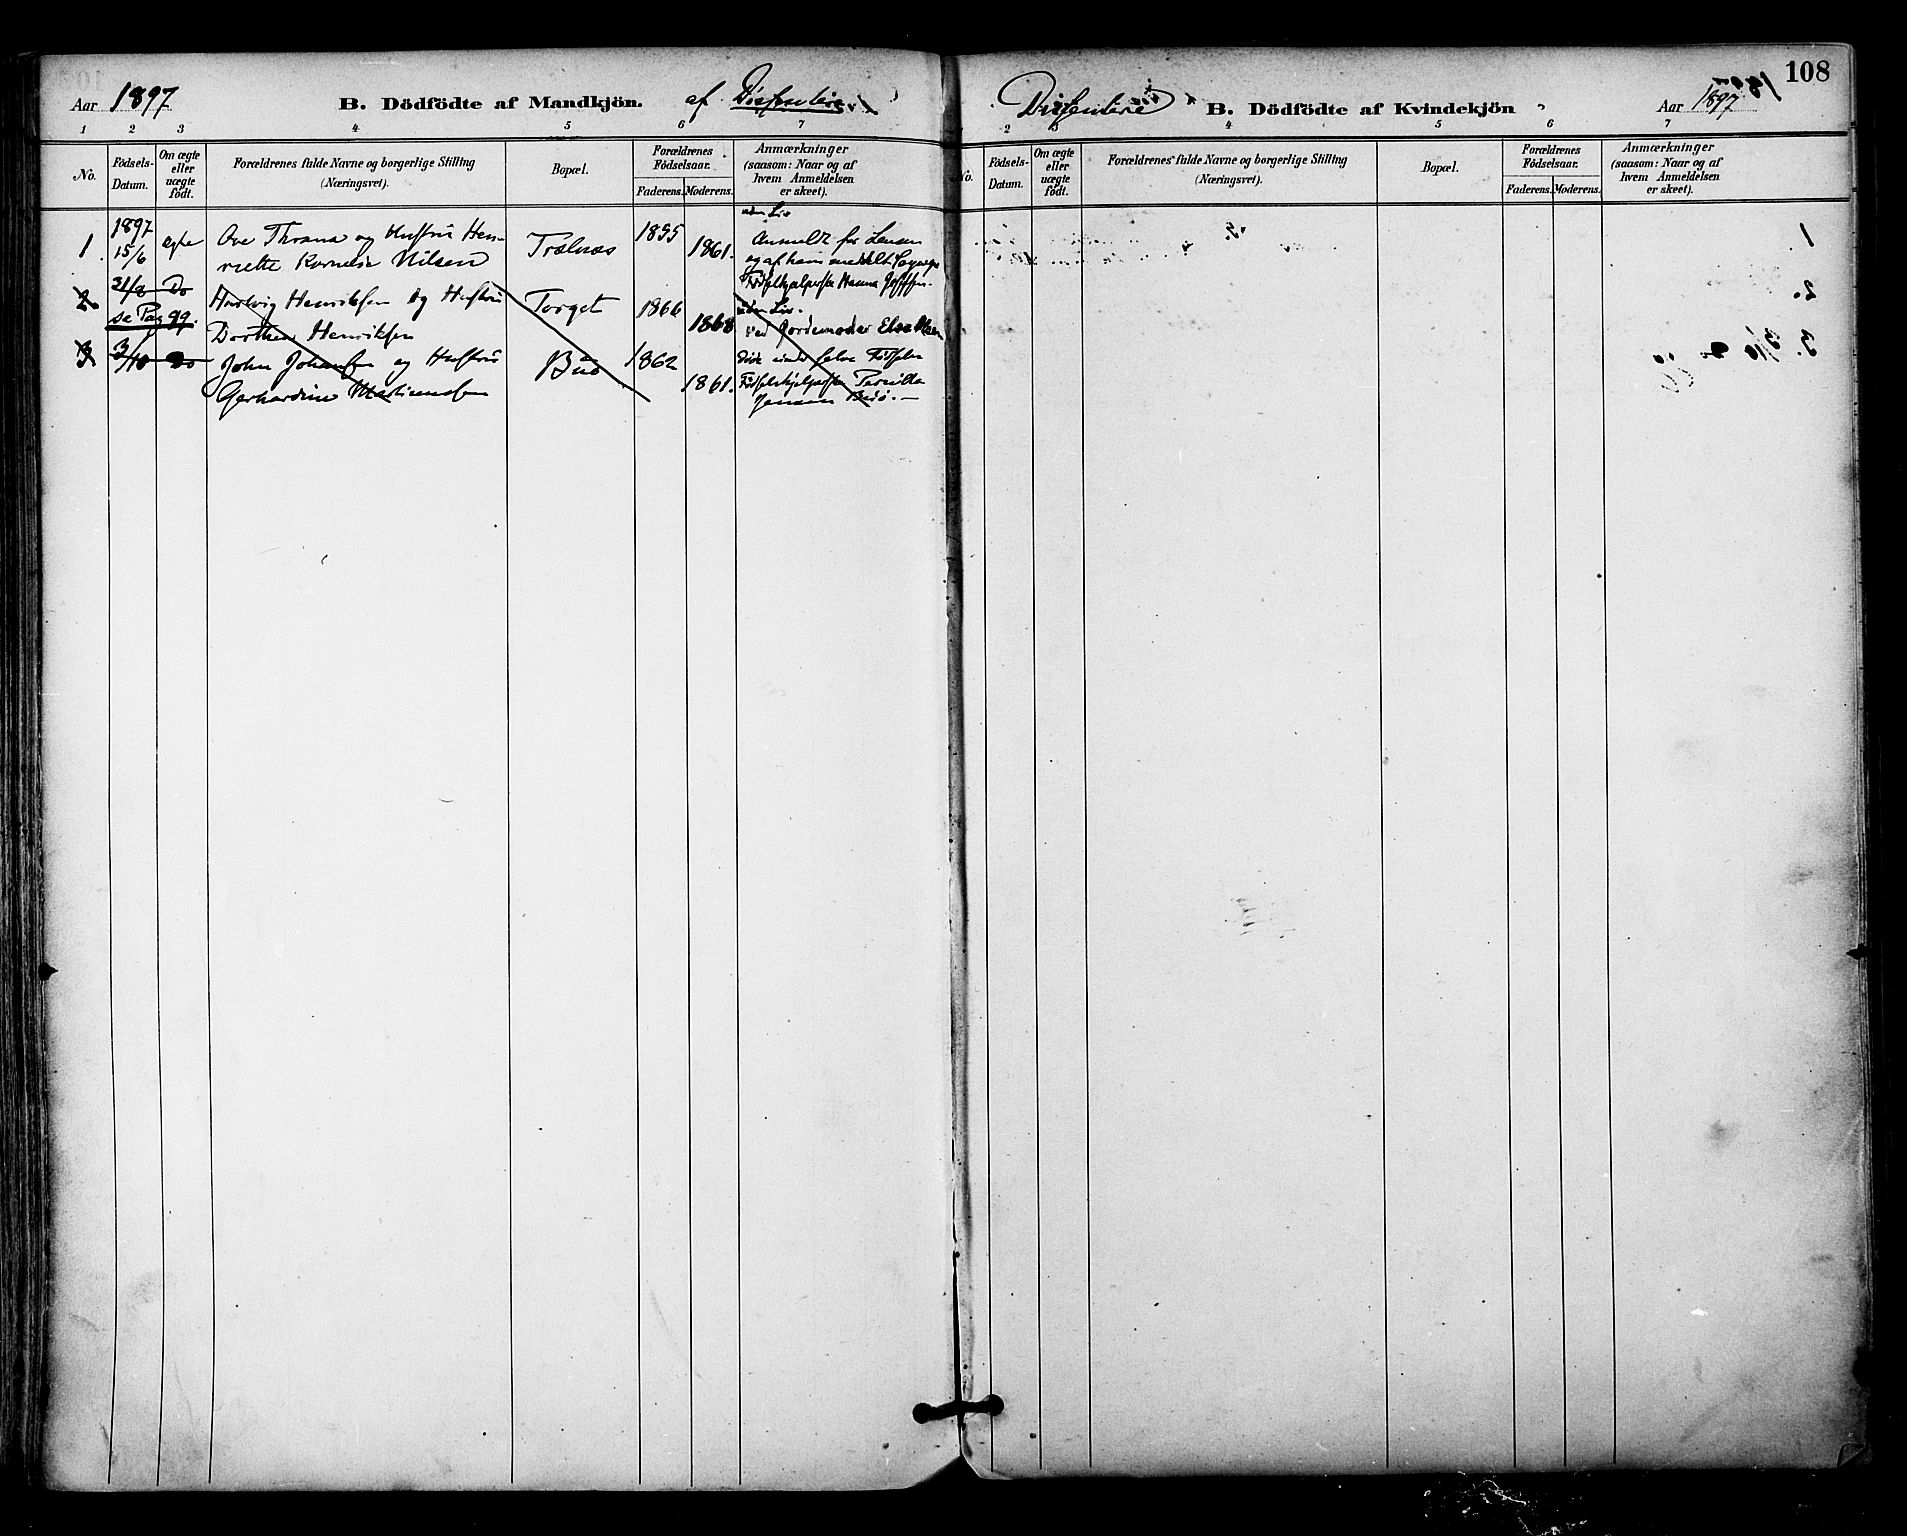 Aar 1897 B. Dödfödte af Mandkjön. af Dissentere
1 2 3 4 5 6 7
No. Födsels-Datum. Om ægte eller uægte födt. Forældrenes fulde Navne og borgerlige Stilling (Næringsvei). Bopæl. Forældrenes Födselsaar. Faderens. Moderens. Anmærkninger (saasom: Naar og af hvem Anmeldelsen er skeet).
uden Liv
1. 1897 15/6 ægte Ove Thrana og Hustru Hen- Trælnæs 1855 Anmeldt for Lensm
riette Kornelia Nilsen 1861. og af ham meddelt
Födselshjælperske Hanna
2 31/8 Do Hartvig Henriksen og Hustru Torget 1866 uden Liv.
se Pag 99. Dorthea Henriksen 1868 ved Jordemoder
3 3/10 Do John Johansen og Hustru 1862 Död under selve Födselen
Gerhardine 1861. Födselshjælpersken Pernilla
Jensen
108
Dissentere B. Dödfödte af Kvindekjön Aar 1897
2 3 4 5 6 7
No. Födsels-Datum. Om ægte eller uægte födt. Forældrenes fulde Navne og borgerlige Stilling (Næringsvei). Bopæl. Forældrenes Födselsaar. Faderens. Moderens. Anmærkninger (saasom: Naar og af hvem Anmeldelsen er skeet).